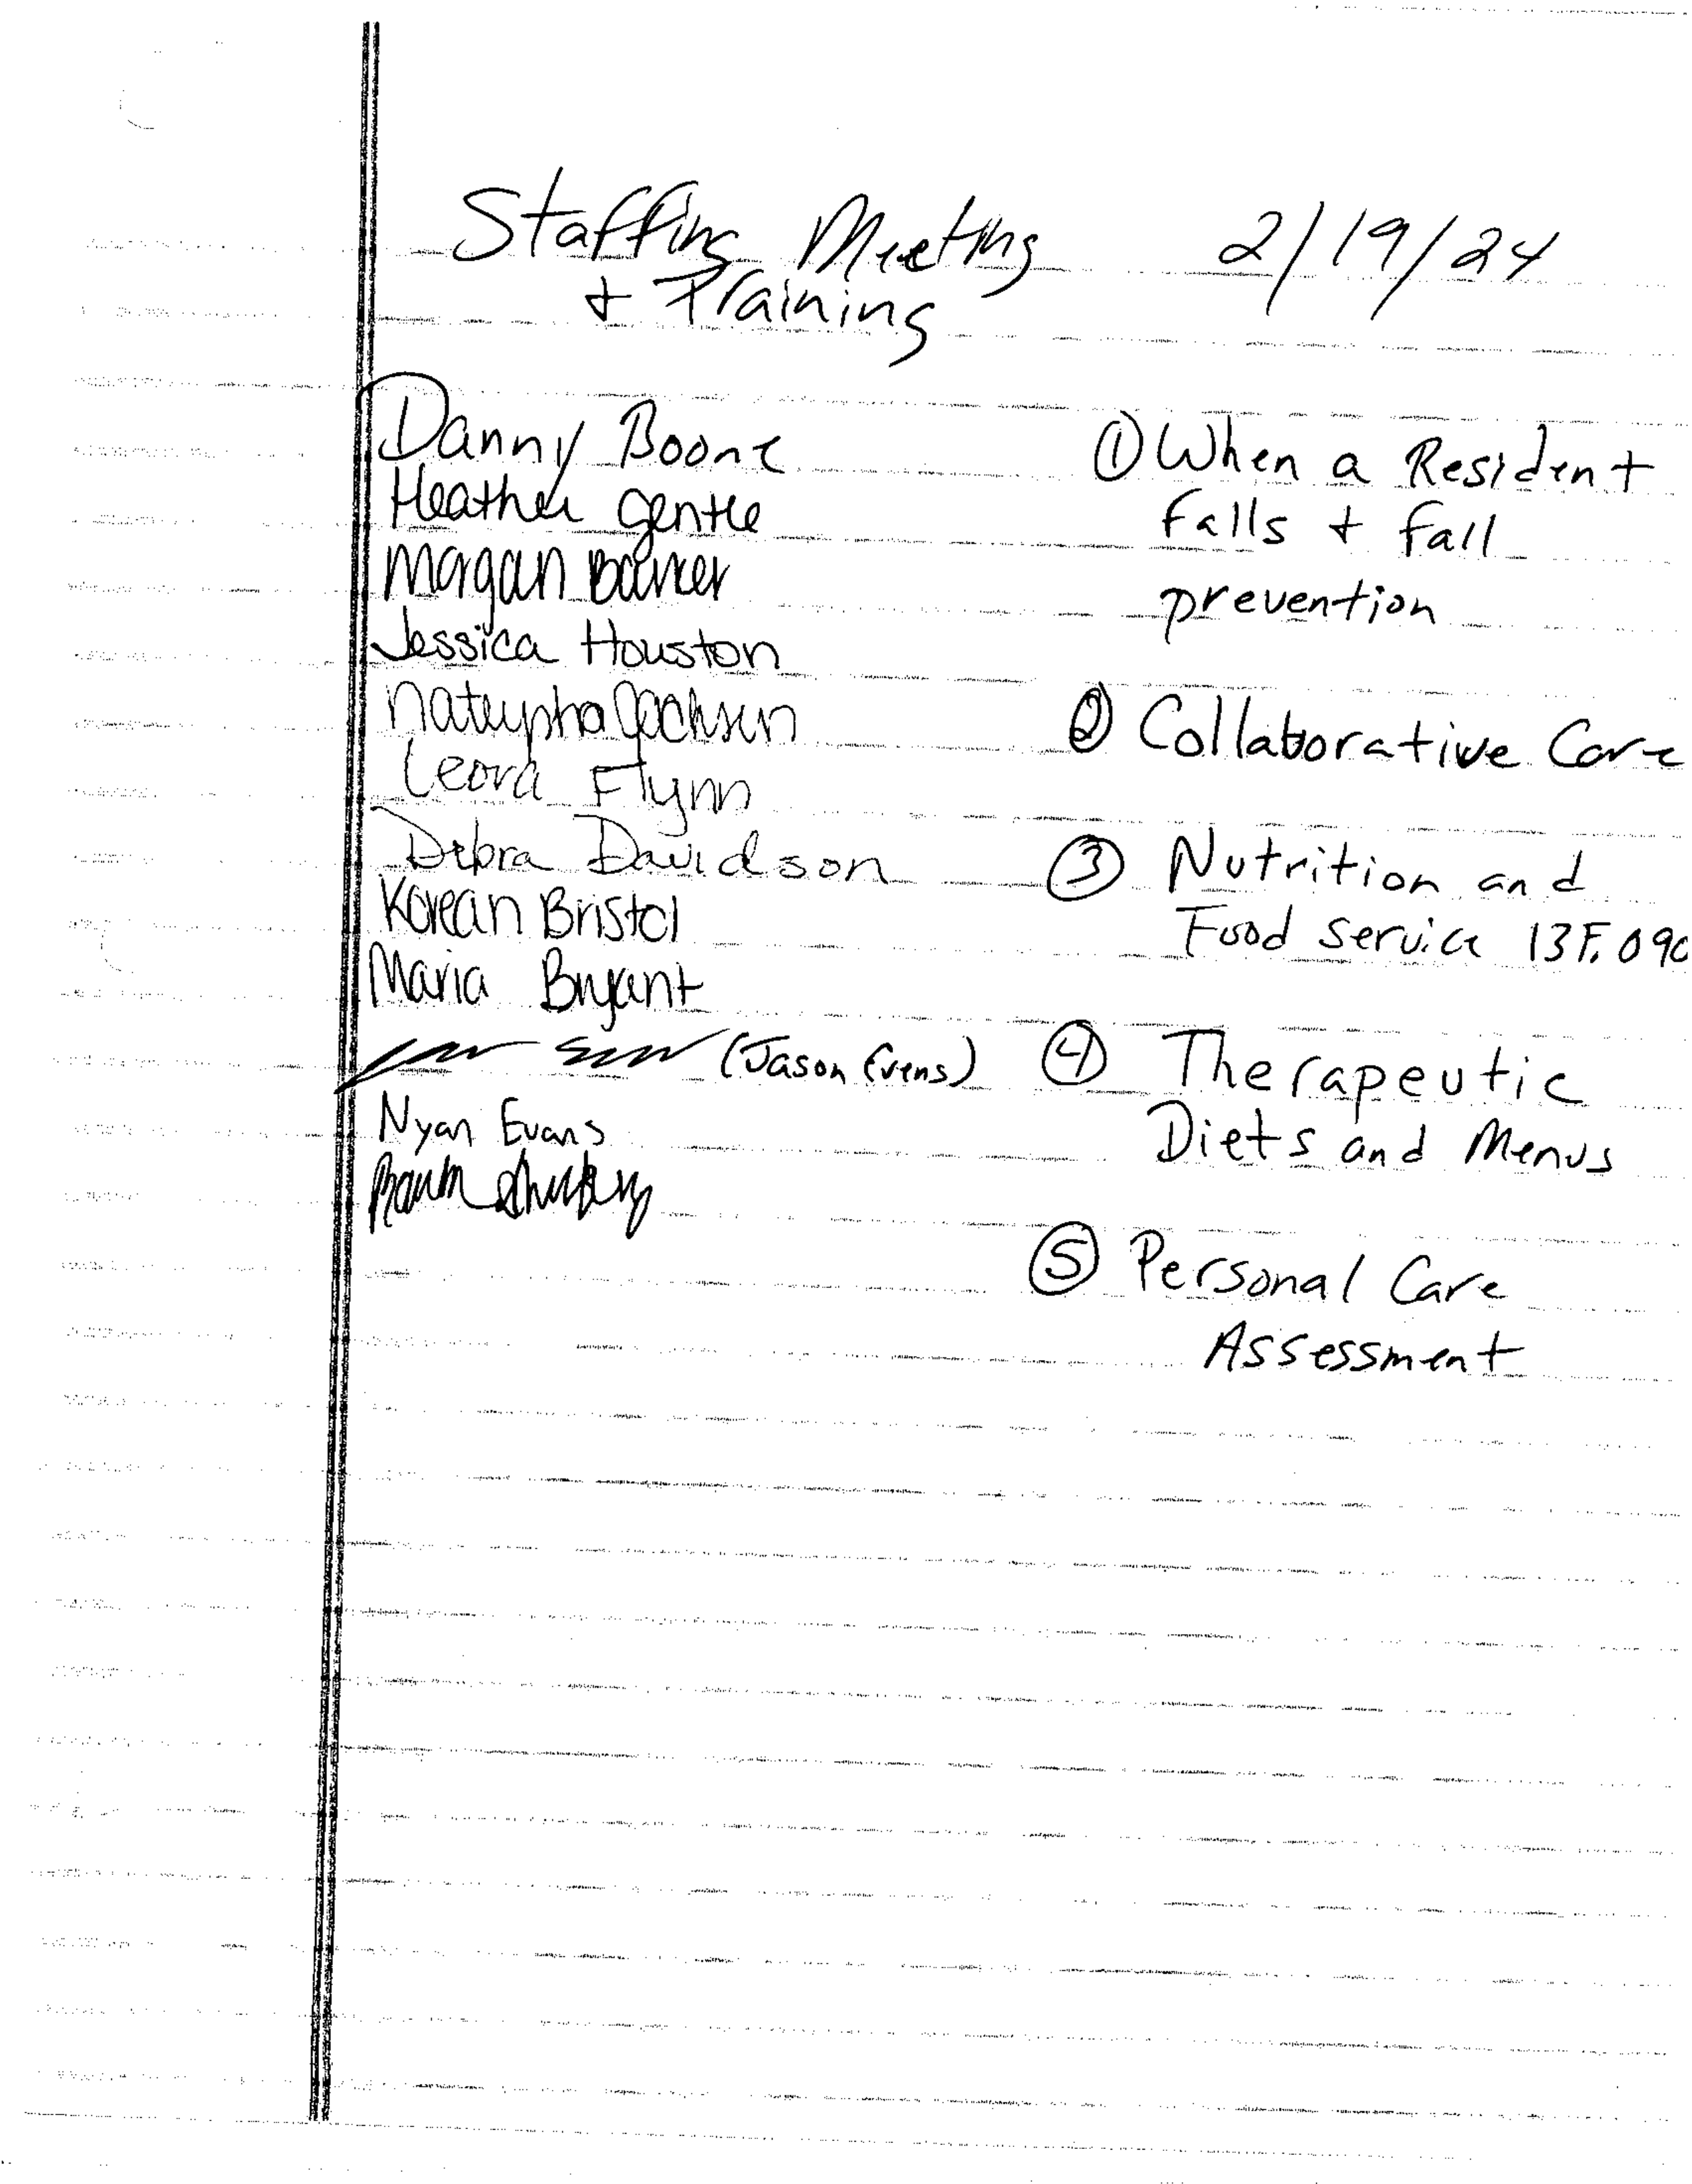 Staffing Meeting 2/19/24
+ Training
Danny Boone
Heather Gentle
Magan Barker
Jessica Houston
Jackson
Leora Flynn
Debra Davidson
Korean Bristol
Maria Bryant
(Jason Evens)
Nyan Evans
① When a Resident
Falls + fall
prevention
② Collaborative Care
③ Nutrition and
Food Service 13F.090
④ Therapeutic
Diets and Menus
⑤ Personal Care
Assessment